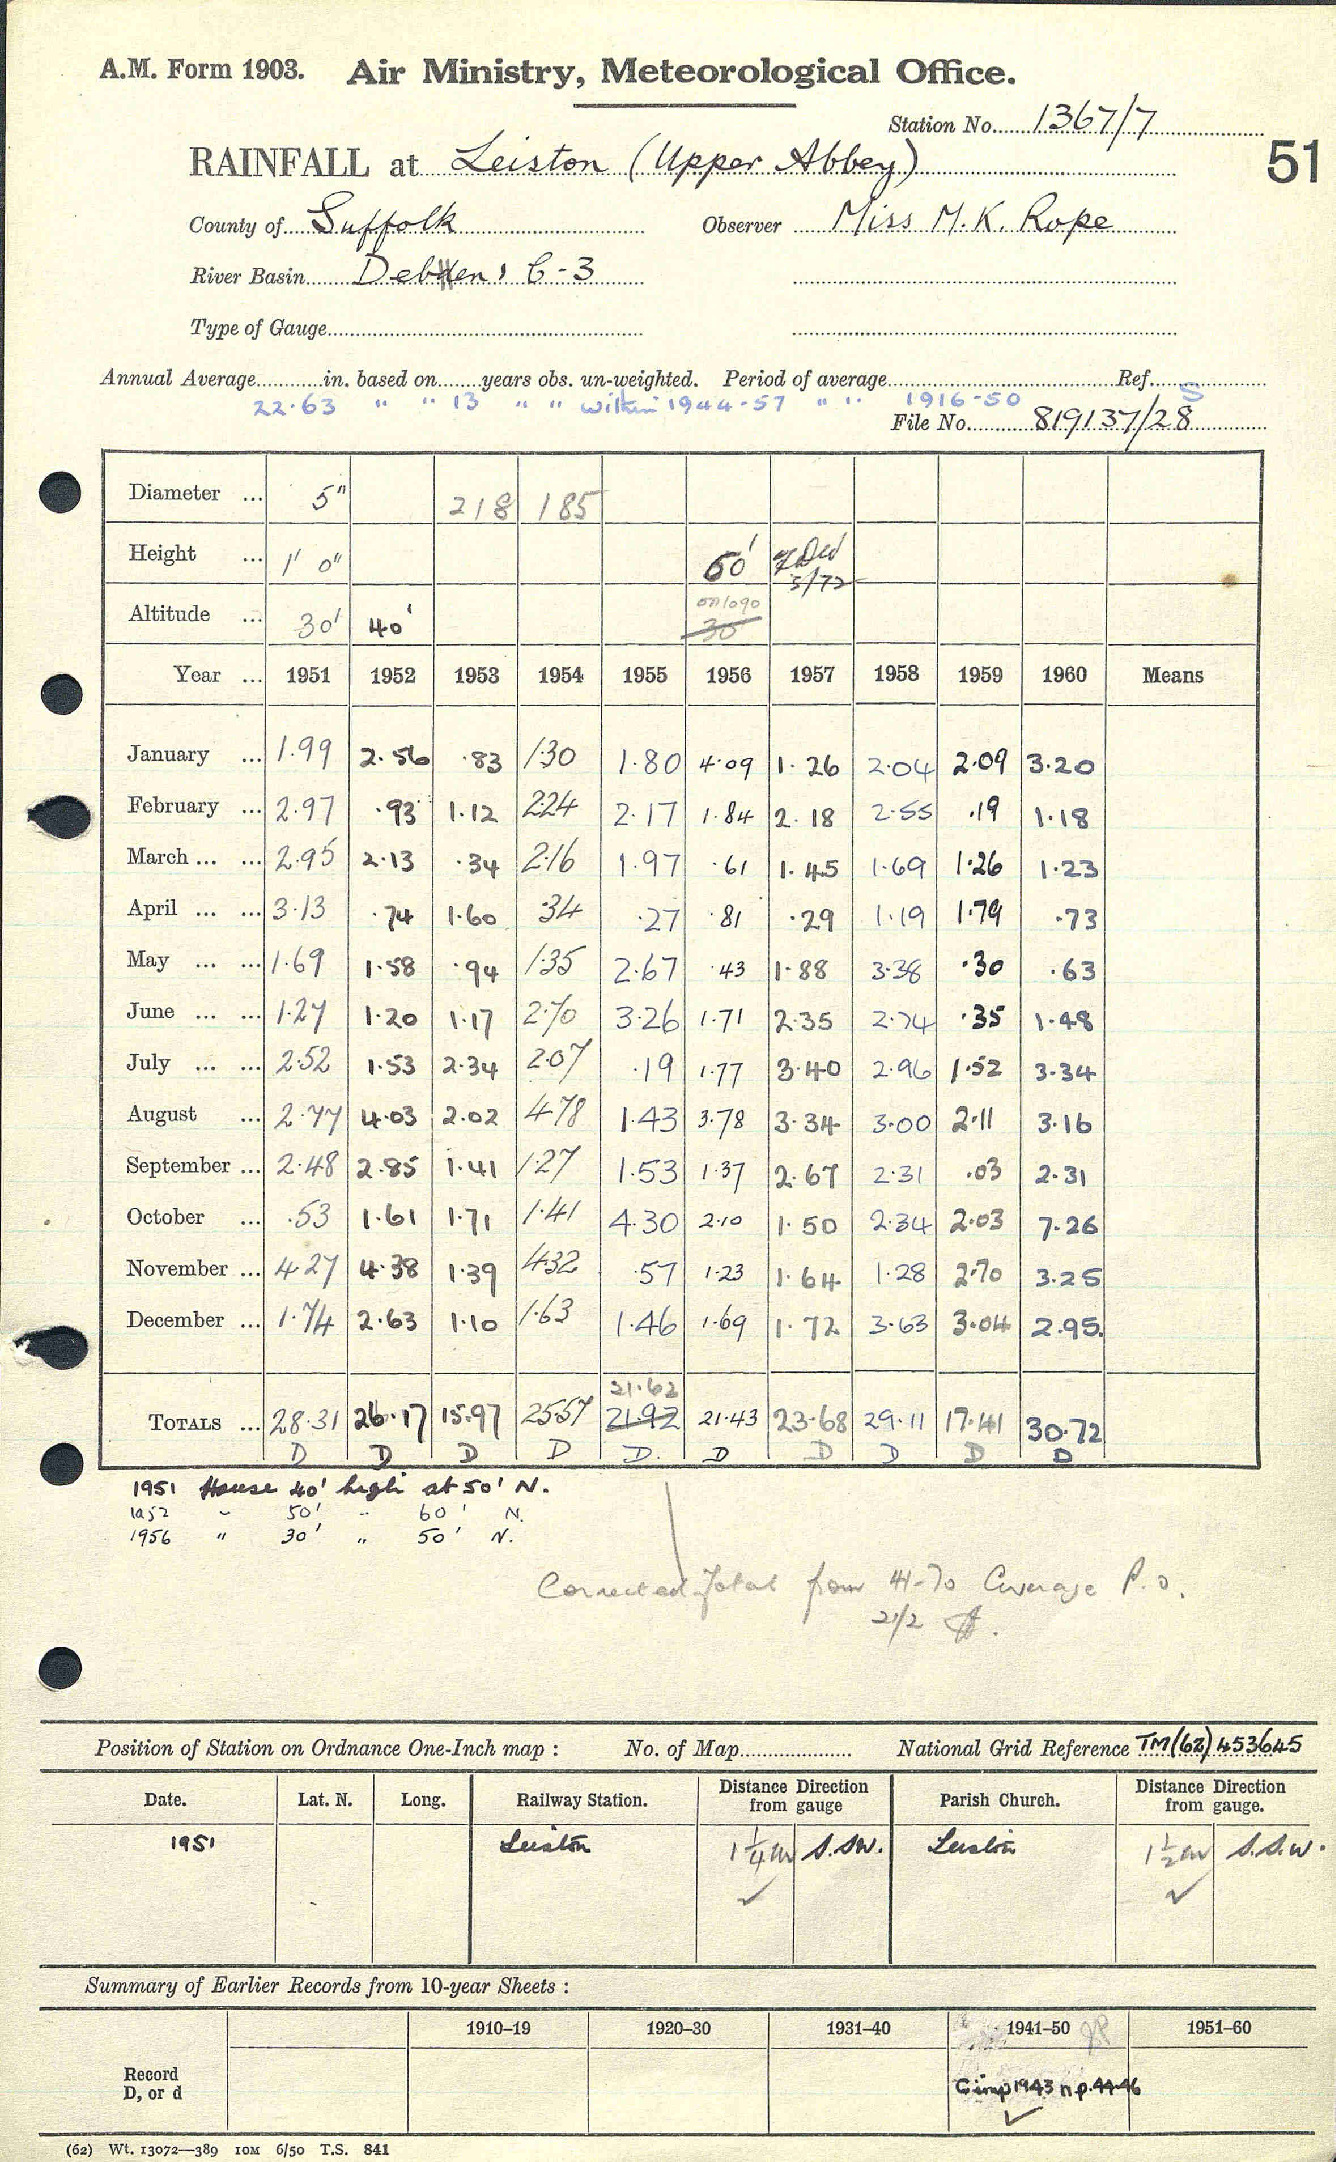 A.M. Form 1903. Air Ministry, Meteorological Office.
Station No. 1367/7
RAINFALL at Leiston (Upper Abbey)
51
County of Suffolk Observer Miss M.K. Rope
River Basin
Type of Gauge
Annual Average in. based on years obs. un-weighted. Period of average Ref. S
22.63 " " 13 " " within 1944-57 " " 1916-50
File No. 819137/28
Diameter ... 5" 218 185
Height ... 1' 0" 60' 5/72
Altitude ... 30' 40' 30
Year ... 1951 1952 1953 1954 1955 1956 1957 1958 1959 1960 Means
January ... 1.99 2.56 .83 1.30 1.80 4.09 1.26 2.04 2.09 3.20
February ... 2.97 .93 1.12 2.24 2.17 1.84 2.18 2.55 .19 1.18
March ... ... 2.95 2.13 .34 2.16 1.97 .61 1.45 1.69 1.26 1.23
April ... ... 3.13 .74 1.60 .34 .27 .81 .29 1.19 1.79 .73
May ... ... 1.69 1.58 .94 1.35 2.67 .43 1.88 3.38 .30 .63
June ... ... 1.27 1.20 1.17 2.70 3.26 1.71 2.35 2.74 .35 1.48
July ... ... 2.52 1.53 2.34 2.07 .19 1.77 3.40 2.96 1.52 3.34
August ... 2.77 4.03 2.02 4.78 1.43 3.78 3.34 3.00 2.11 3.16
September ... 2.48 2.85 1.41 1.27 1.53 1.37 2.67 2.31 .03 2.31
October ... .53 1.61 1.71 1.41 4.30 2.10 1.50 2.34 2.03 7.26
November ... 4.27 4.38 1.39 4.32 .57 1.23 1.64 1.28 2.70 3.25
December ... 1.74 2.63 1.10 1.63 1.46 1.69 1.72 3.63 3.04 2.95
21.62
TOTALS ... 28.31 26.17 15.97 25.57 21.92 21.43 23.68 29.11 17.41 30.72
D D D D D. D D D D D
1951 House 40' high at 50' N.
1952 " 50' " 60' N.
1956 " 30' " 50' N.
Corrected Total from 41-70 Average P.O.
21/2
Position of Station on Ordnance One-Inch map : No. of Map National Grid Reference TM(62)453645
Date. Lat. N. Long. Railway Station. Distance Direction from gauge Parish Church. Distance Direction from gauge.
1951 Leiston 1 1/4 m S.SW. Leiston 1 1/2 m S.S.W.
Summary of Earlier Records from 10-year Sheets :
1910–19 1920–30 1931–40 1941–50 1951–60
Record
D, or d
1943 n p. 44-46
(62) Wt. 13072—389 10M 6/50 T.S. 841